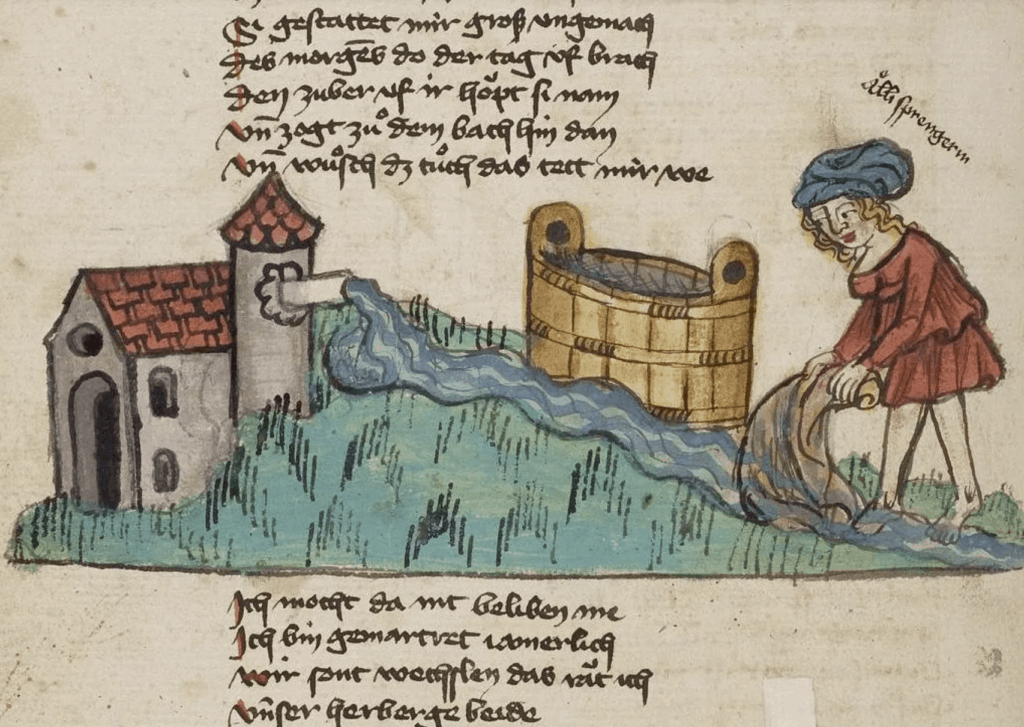 Si gestattet mir groß ungemach
Des morgēs do der tag vf brach
Den zuber vf ir hoͤpt si nam
Vn̄ zogt zuͦ dem bach hin dan
Vn̄ wuͦsch dz tuͦch das tett mir we
Ich mocht da nit beliben me
Ich bin gemartret iamerlich
Wir sont wechslen das raͧt ich
Vn̄ser herberge beide